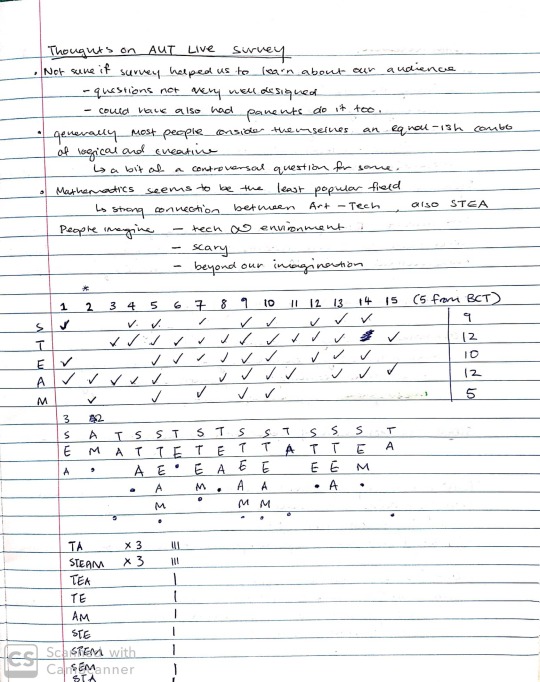 Thoughts on AUT LIVE survey
• Not sure if survey helped us to learn about our audience
- questions not very well designed
- could have also had parents do it too.
• generally most people consider themselves an equal-ish combo
of logical and creative
↳ a bit of a controversal question for some.
• Mathematics seems to be the least popular field
↳ strong connection between Art - Tech, also STEA
People imagine - tech ∞ environment
- scary
- beyond our imagination
*
1 2 3 4 5 6 7 8 9 10 11 12 13 14 15 (5 from BCT)
S ✓ ✓ ✓ ✓ ✓ ✓ ✓ ✓ ✓ 9
T ✓ ✓ ✓ ✓ ✓ ✓ ✓ ✓ ✓ ✓ ✓ ✓ 12
E ✓ ✓ ✓ ✓ ✓ ✓ ✓ ✓ ✓ ✓ 10
A ✓ ✓ ✓ ✓ ✓ ✓ ✓ ✓ ✓ ✓ ✓ ✓ 12
M ✓ ✓ ✓ ✓ ✓ 5
3 2
S A T S S T S T S S T S S S T
E M A T T E T E T T A T T E A
A A E E A E E E E M
A M A A A
M M M
TA x 3 |||
STEAM x 3 |||
TEA |
TE |
AM |
STE |
STEM |
SEM |
STA |
CS Scanned with
CamScanner